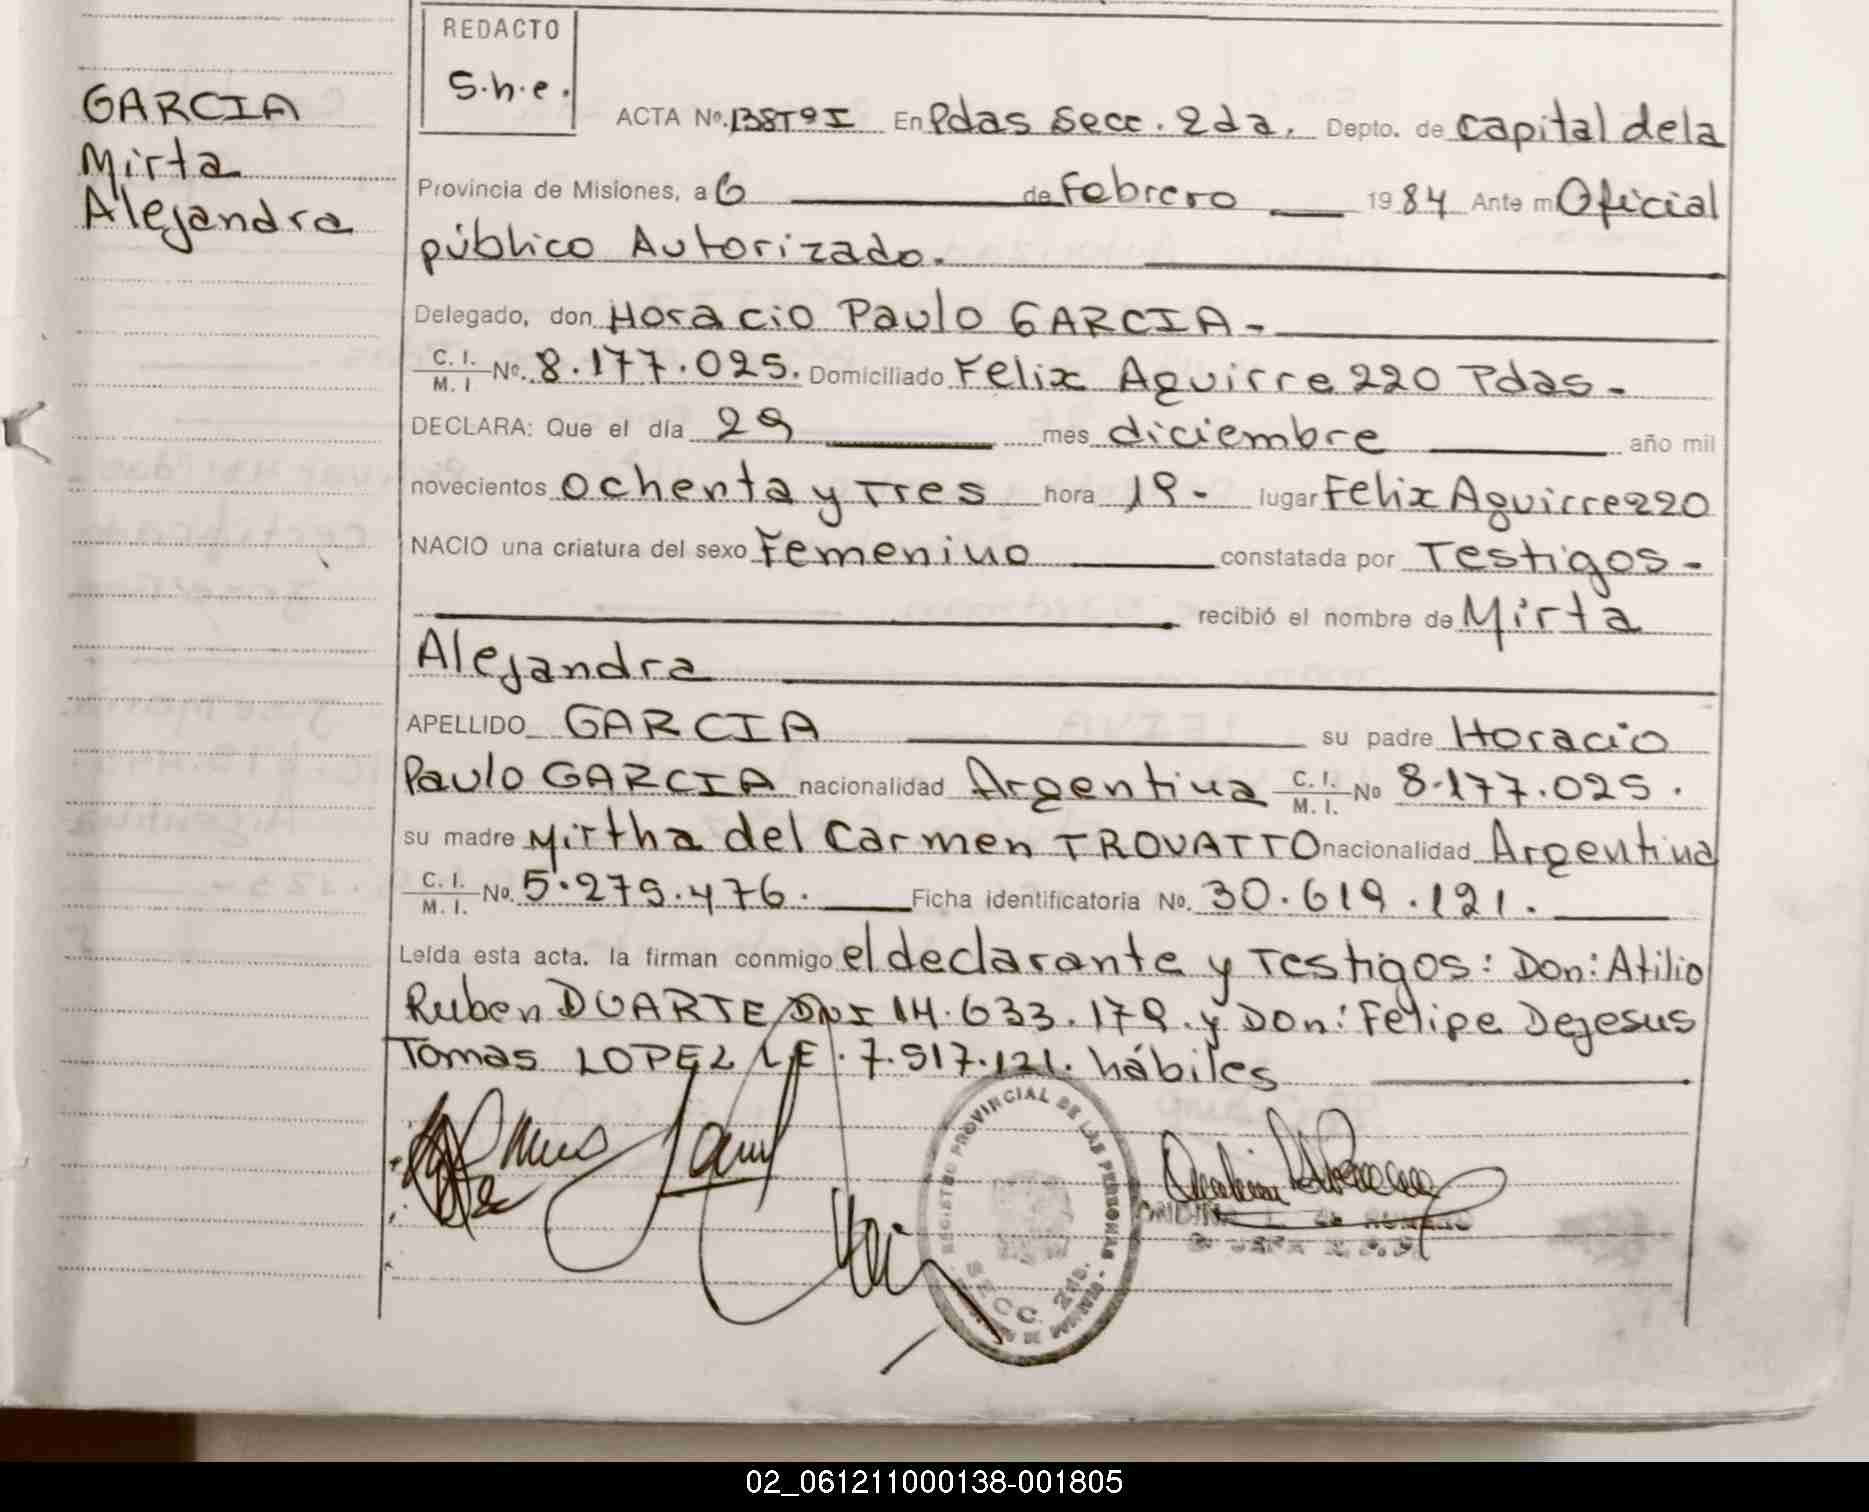 REDACTO
S.h.e.
GARCIA
Mirta
Alejandra
ACTA Nº. 138Tº I En Pdas Secc. 2da. Depto. de Capital de la
Provincia de Misiones, a 6 de Febrero 1984 Ante m Oficial
público Autorizado.
Delegado, don Horacio Paulo GARCIA-
C. I. / M. I Nº. 8.177.025. Domiciliado Felix Aguirre 220 Pdas-
DECLARA: Que el día 29 mes diciembre año mil
novecientos Ochenta y Tres hora 19- lugar Felix Aguirre 220
NACIO una criatura del sexo Femenino constatada por Testigos-
recibió el nombre de Mirta
Alejandra
APELLIDO GARCIA su padre Horacio
Paulo GARCIA nacionalidad Argentina C. I. / M. I. Nº 8.177.025.
su madre Mirtha del Carmen TROVATTO nacionalidad Argentina
C. I. / M. I. Nº. 5.279.476. Ficha identificatoria Nº. 30.619.121.
Leída esta acta. la firman conmigo el declarante y Testigos: Don: Atilio
Ruben DUARTE DNI 14.633.179. y Don: Felipe Dejesus
Tomas LOPEZ LE. 7.517.121. hábiles
REGISTRO PROVINCIAL DE LAS PERSONAS
SECC. 2da.
02_061211000138-001805